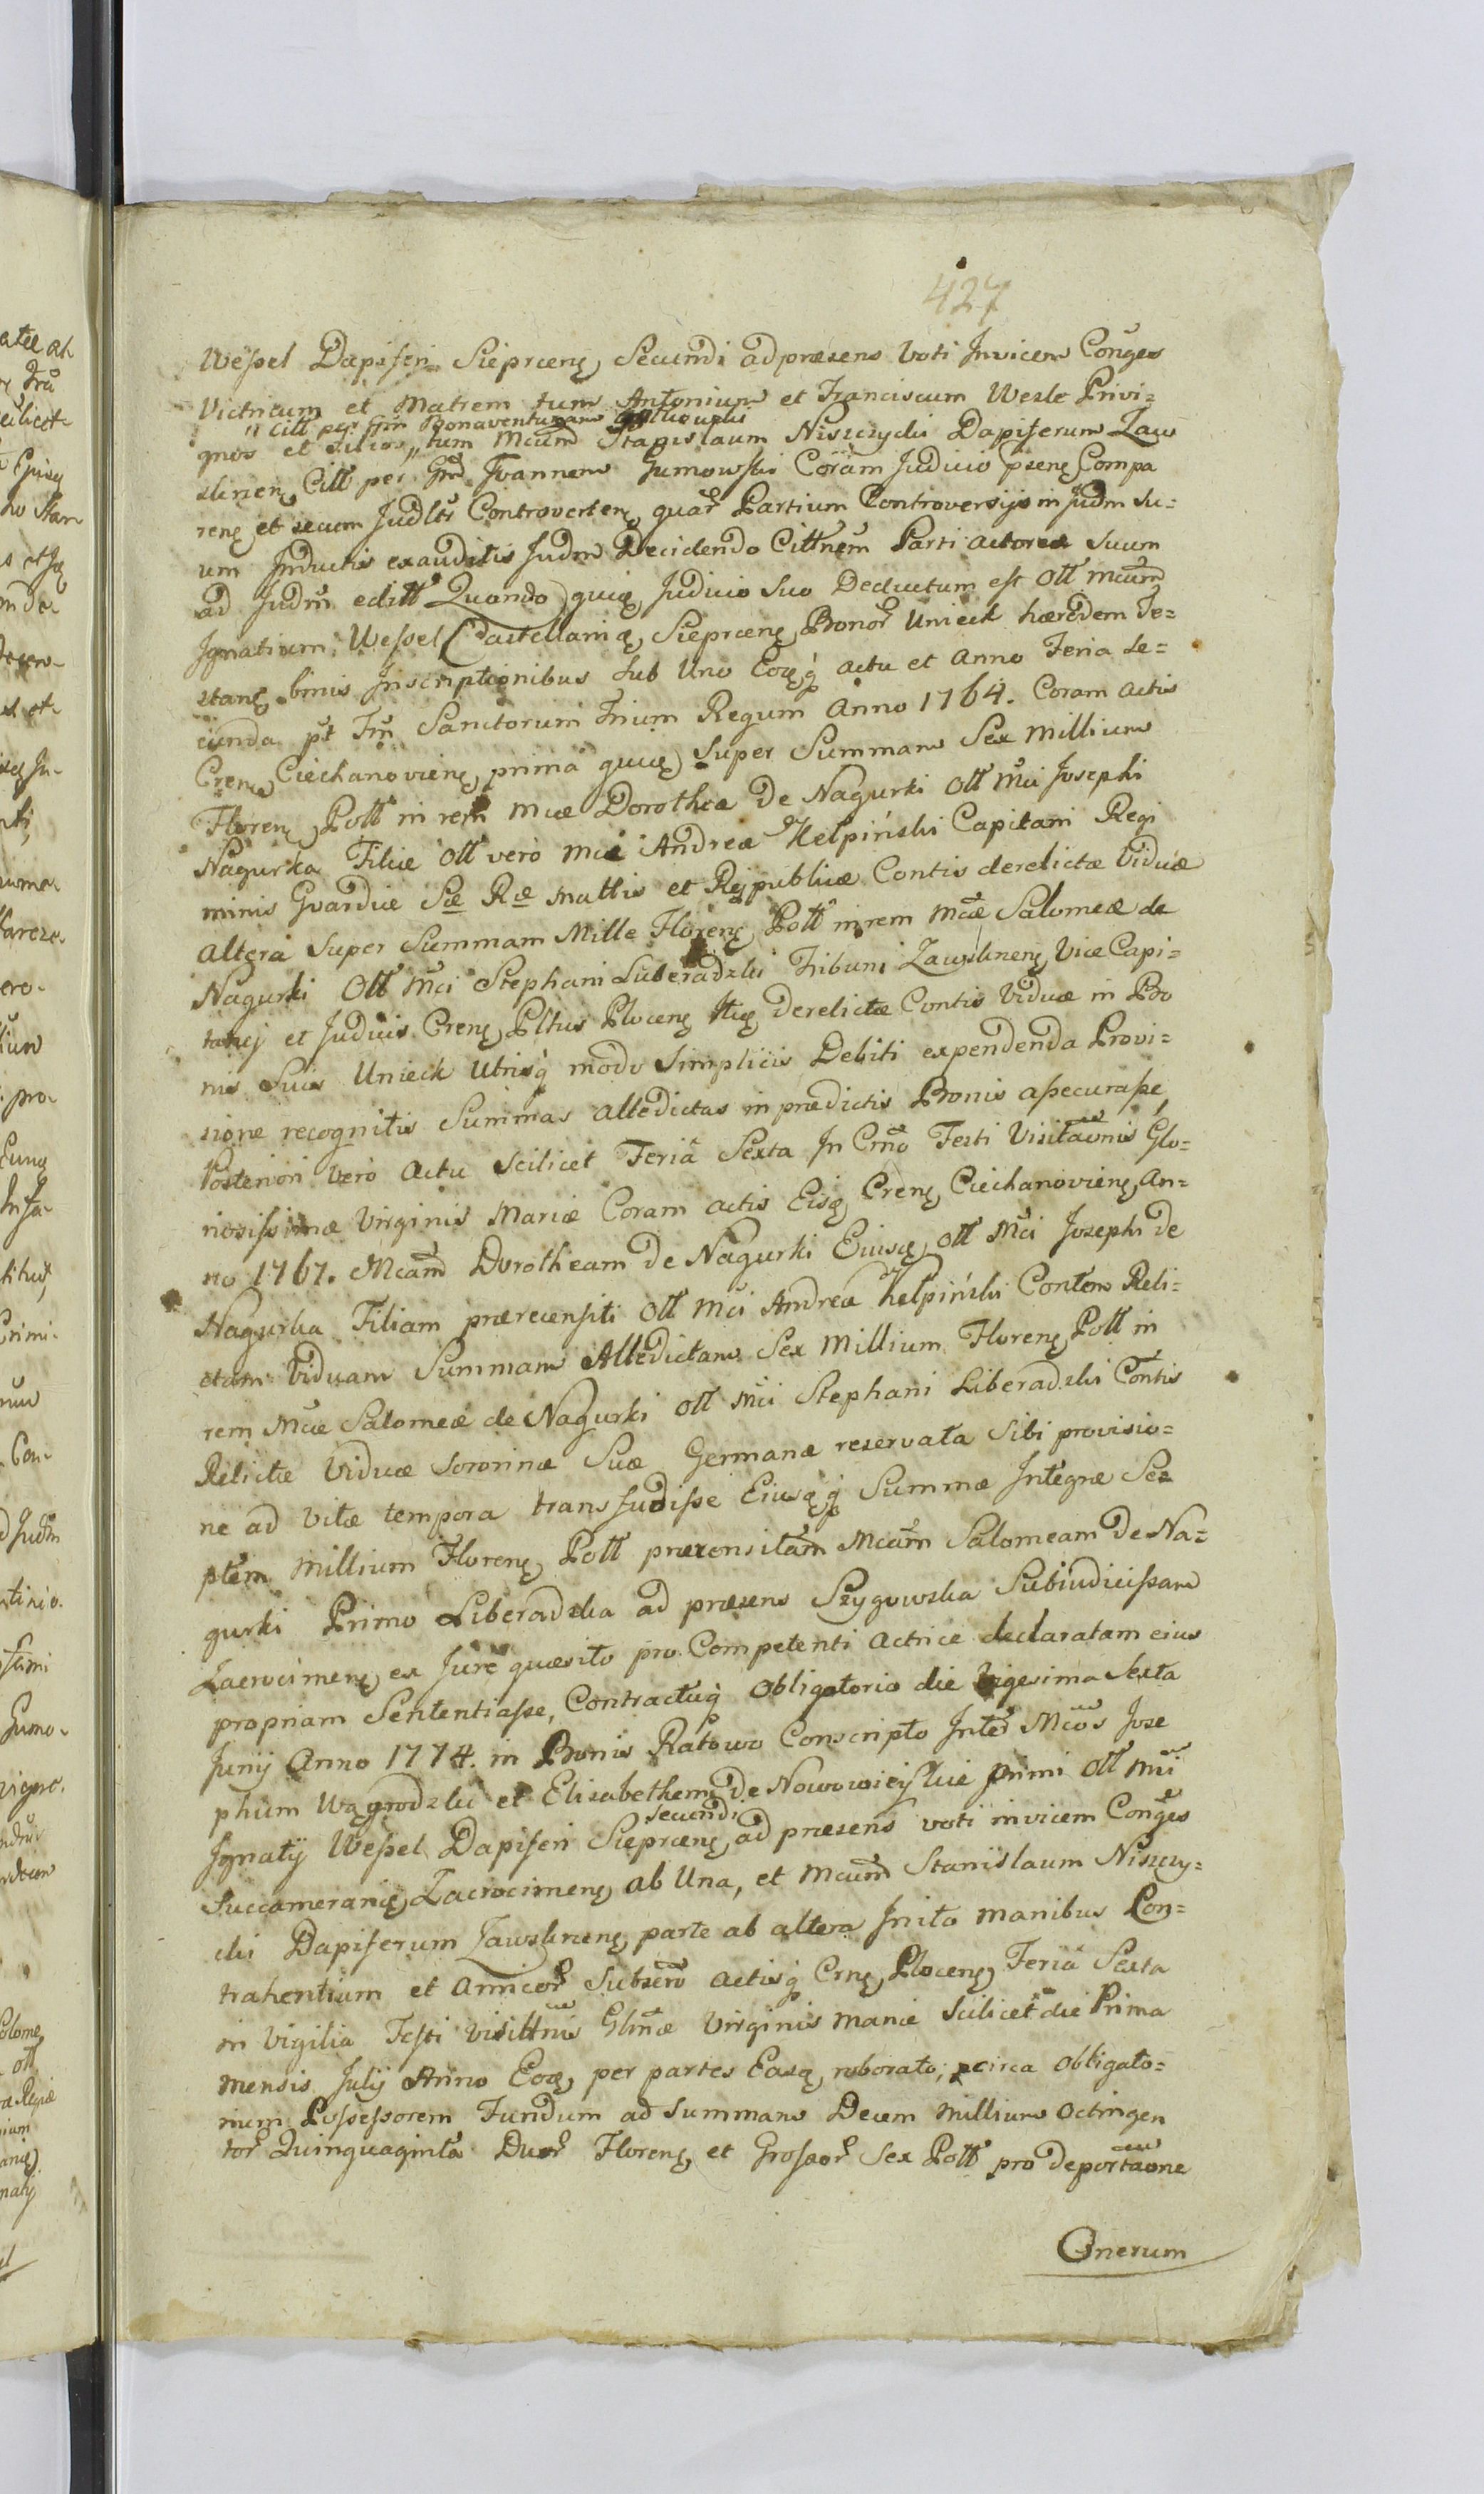 427
Weſsel Dapiferi Sieprcenȩ Secundi ad præsens Voti Invicem Conges
Victricum et Matrem tum Antonium et Franciscum Wesle Privi=
" Citt per Gm Bonaventuram
gnos et Filios „ tum Mcum Stanislaum Niszczycki Dapiferum Zaw
slinen Citt per Gnd Joannem Gumowski Coram Judicio pseng Compa
renȩ et secum Judltr Controverten quar Partium Controversijs in Judm Su=
um Inductis exauditis Judm Decidendo Cittnem Parti actoreæ suum
ad Judm editt Quando quiȩ Judicio Suo Deductum est Ott mcum
Ignatium Weſsel Castellaniȩ Sieprcenȩ Bonor Unieck hæredem Te=
stanȩ binis Inscriptionibus Sub Uno Eoȩq actu et Anno Feria Se=
cunda pt Fm Sanctorum Trium Regum Anno 1764. Coram actis
Crenȩ Ciechanovienȩ prima quiȩ Super Summam Sex Millium
Florenȩ Pott in rem Mcæ Dorotheæ De Nagurki Ott Mci Josephi
Nagurka Filiæ Ott vero Mci Andreæ Kelpiński Capitani Regi
minis Gvardiæ Sæ Ræ Mattis et Rejpublicæ Contis derelictæ Viduæ
altera Super Summam Mille Florenȩ Pott in rem Mcæ Salomeæ de
Nagurki Ott Mci Stephani Liberadzki Tribuni Zawslinenȩ Vice Capi=
tanej et Judicis Crenȩ Pltus Plocenȩ Itiȩ derelictæ Contis Viduæ in Bo
nis Suis Unieck Utrisq modo Simplicis Debiti expendenda Provi=
sione recognitis Summas altedictas in prædictis Bonis aſsecuraſse,
Posteriori vero actu scilicet Feria Sexta In Crno Festi Visitaonis Glo=
rioſiſsimæ Virginis Mariæ Coram actis Eisȩ Crenȩ Ciechanovienȩ An=
no 1767. Mcam Dorotheam de Nagurki Eiusȩ Ott Mci Josephi de
Nagurka Filiam præreceensiti Ott Mci Andreæ Kelpiński Contem Reli=
ctam Viduam Summam Altedictam Sex Millium Florenȩ Pott in
rem Mcæ Salomeæ de Nagurki Ott Mci Stephani Liberadzki Contis
Relictæ Viduæ Sororinæ Suæ Germanæ reservata Sibi provisio=
ne ad vitæ tempora transfudiſse Eiusȩq Summæ Integræ Se=
ptem Millium Florenȩ Pott præcensitam Mcam Salomeam de Na=
gurki Primo Liberadzka ad præsens Szygowska Subiudiciſsam
Zacrocimenȩ ex Jure quæsito pro Competenti Actrice declaratam eius
propriam Sententiaſse, Contractuq obligatorio die Vigesima Sexta
Junij Anno 1774. in Bonis Ratowo Conscripto Inter Mcos Jose
phum Wągrodzki et Elisabetham de Nowowieyskie primi Ott Mci
Secundi
Ignatij Weſsel Dapiferi Sieprcenȩ ad præsens voti invicem Conges
Succameraniȩ Zacrocimenȩ ab Una, et Mcum Stanislaum Niszczy=
cki Dapiferum Zawslinenȩ parte ab altera Inito manibus Con=
trahentium et Amicor Subscro actisq Crnȩ Plocenȩ Feria Sexta
in Vigilia Festi Visittnis Glmæ Virginis Mariæ Scilicet die Prima
Mensis Julij Anno Eoȩ per partes Easȩ roborato, circa Obligato=
rium Poſseſsorem Fundum ad Summam Decem Millium Octingen
tor Quinquaginta Duor Florenȩ et Groſsor Sex Pott pro deportaone
Onerum